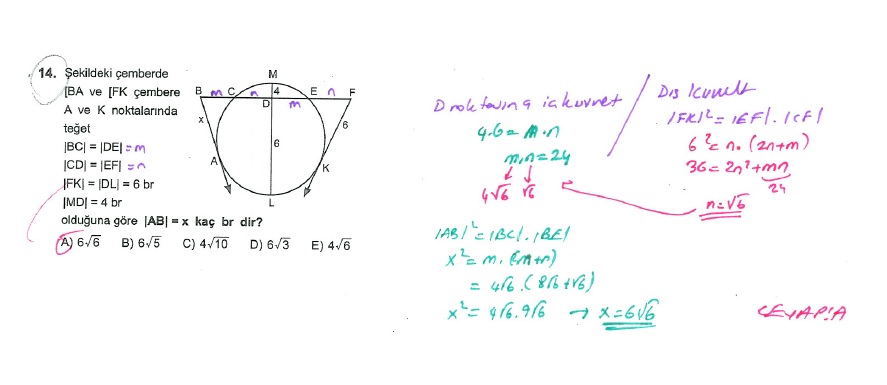 14. Şekildeki çemberde
[BA ve [FK çembere
A ve K noktalarında
teğet
|BC| = |DE| = m
|CD| = |EF| = n
|FK| = |DL| = 6 br
|MD| = 4 br
olduğuna göre |AB| = x kaç br dir?
A) 6√6 B) 6√5 C) 4√10 D) 6√3 E) 4√6
M
B m C n 4 E n F
D m
x 6
6
A K
L
D noktasına iç kuvvet
4.6 = m.n
m.n = 24
4√6 √6
Dış kuvvet
|FK|² = |EF|.|CF|
6² = n.(2n+m)
36 = 2n² + mn
24
n = √6
|AB|² = |BC|.|BE|
x² = m.(2m+n)
= 4√6.(8√6+√6)
x² = 4√6.9√6 → x = 6√6
CEVAP:A